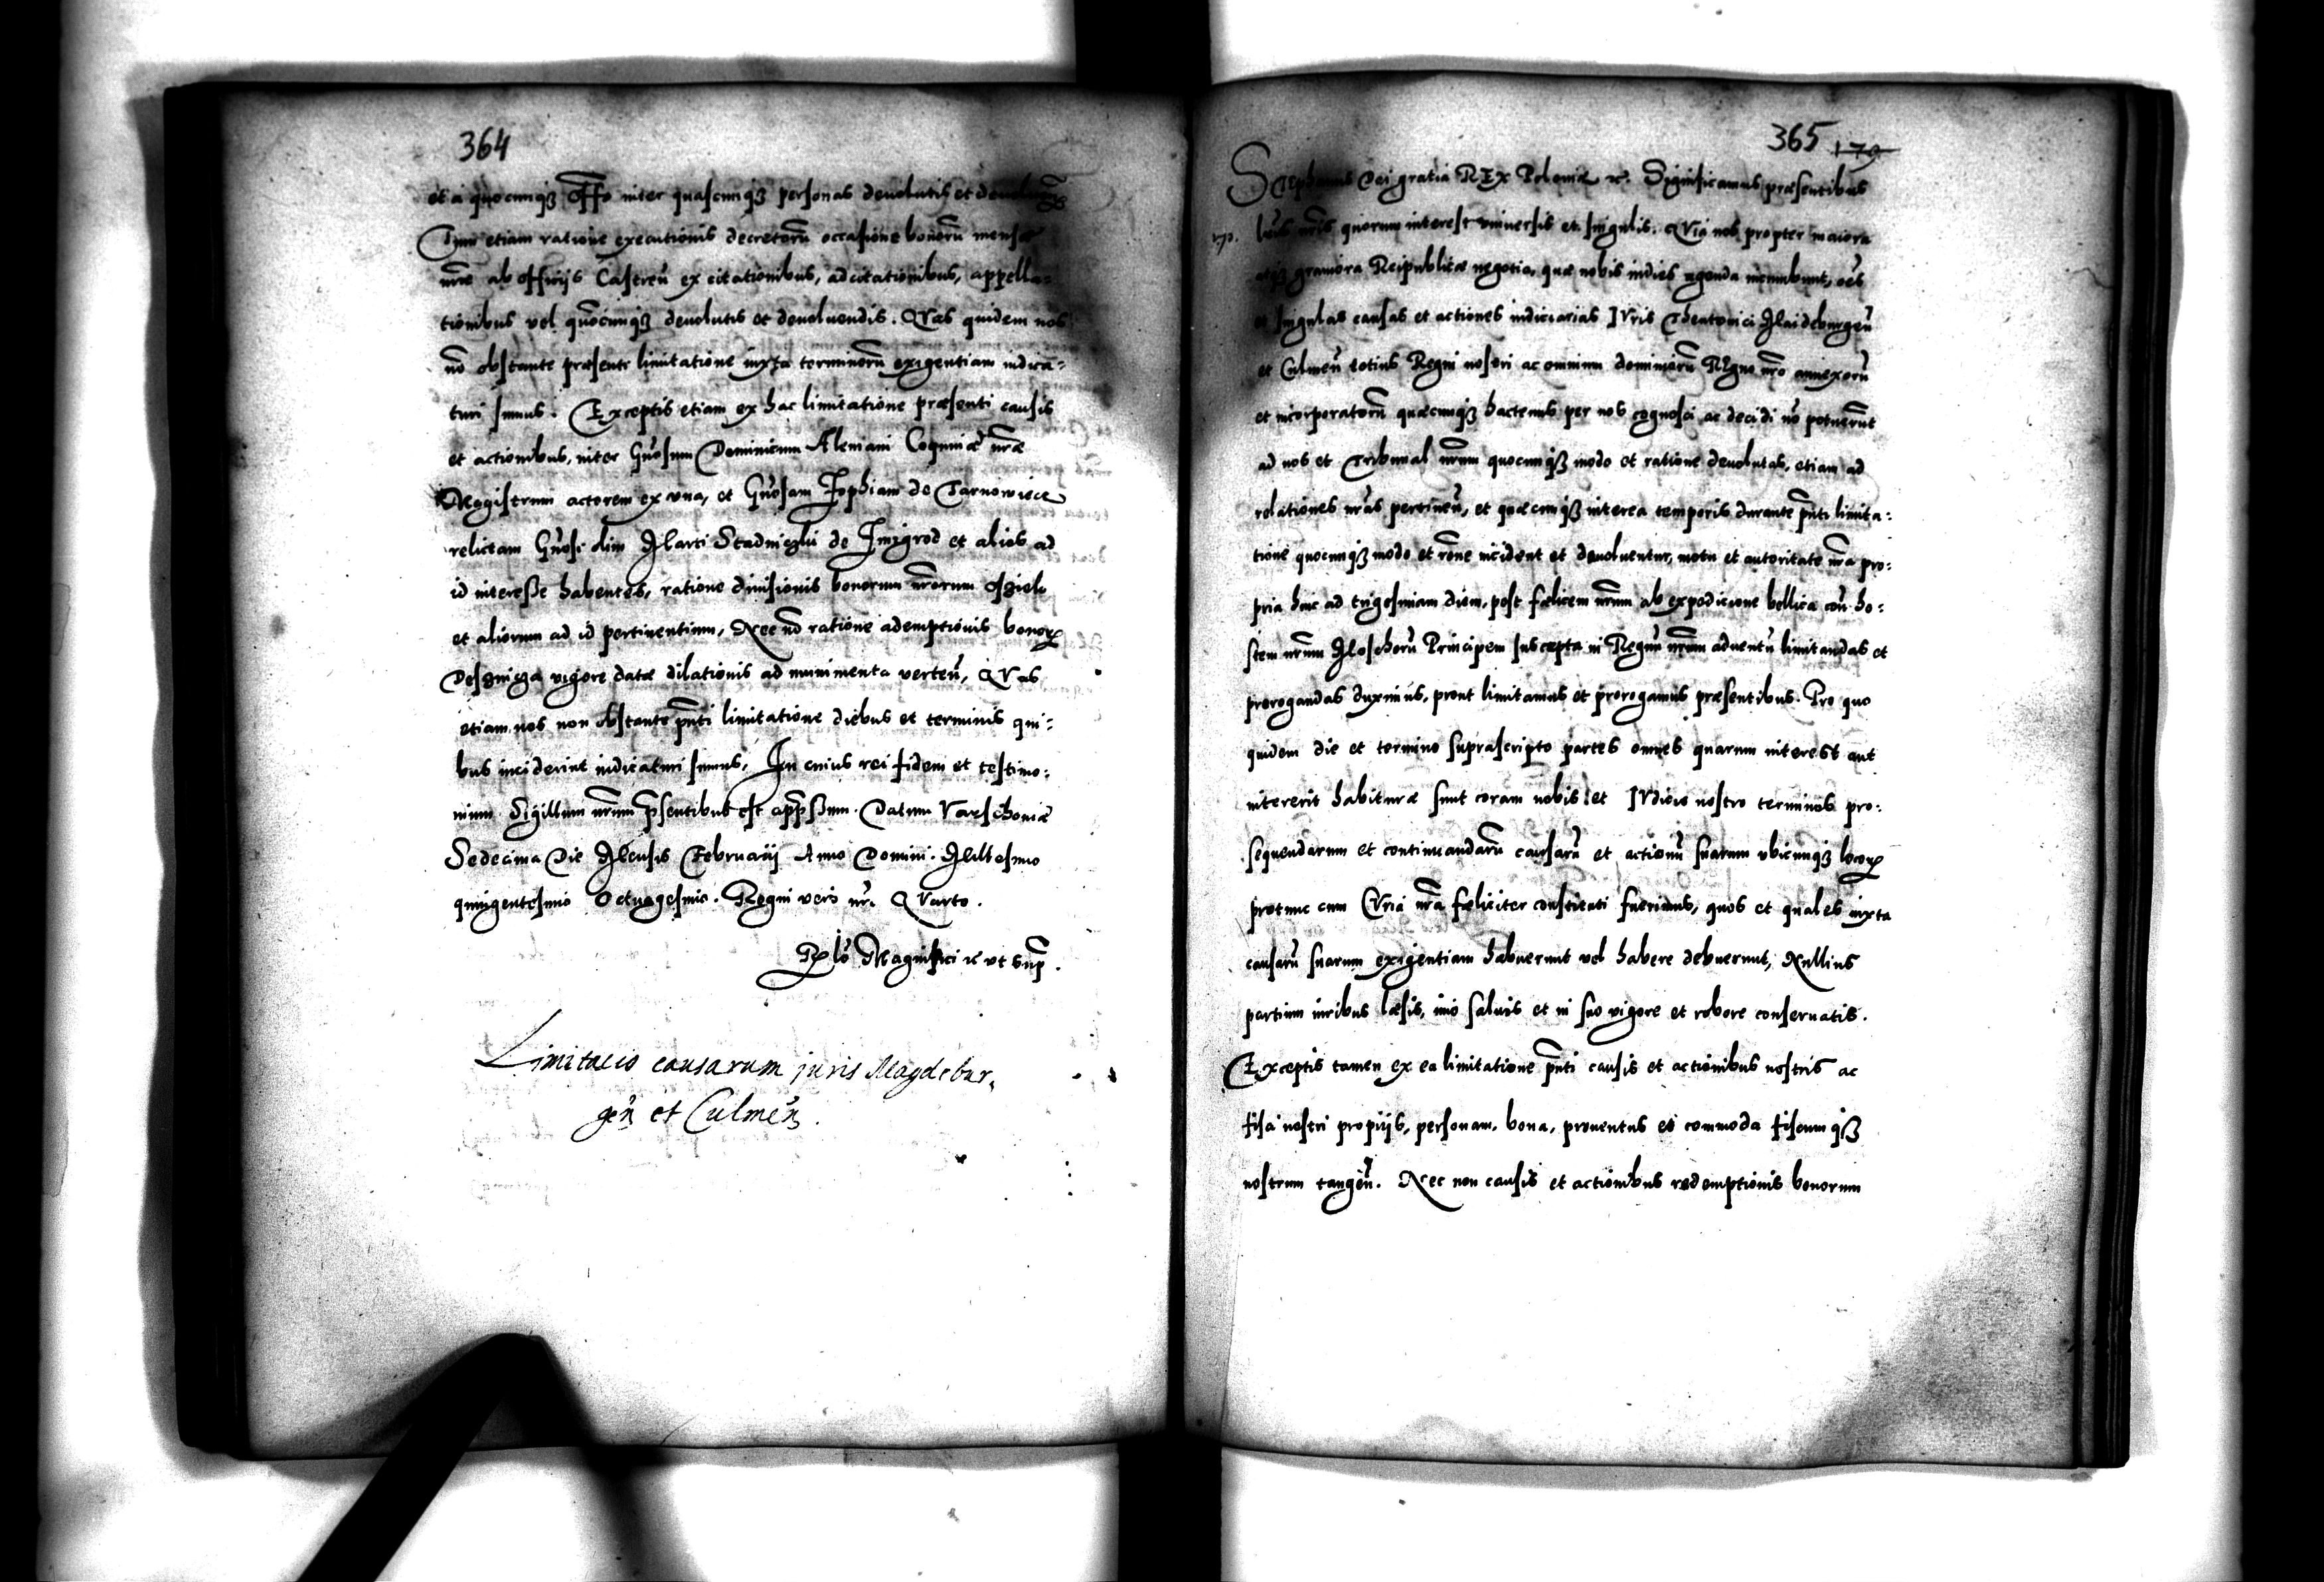 364
et a quocunqꝫ offo inter quascunqꝫ personas devolutis et
Tum etiam ratione executionis decretorū occasione bonorū mensæ
nr̄æ ab officijs Castreñ ex citationibus, adcitationibus, appella-
tionibus vel quōcunqꝫ devolutis et devoluendis. QVas quidem nos
nō obstante præsenti limitatione iuxta terminorū exigentiam iudica-
turi sumus. Exceptis etiam ex hac limitatione præsenti causis
et actionibus, inter Gn̄osum Dominicum Alemani Coquinæ nr̄æ
Magistrum actorem ex vna, et Gn̄osam Zophiam de Tarnowiecz
relictam Gn̄osi olim Marci Stadniczki de Zmigrod et alios ad
id interesse habentes, ratione divisionis bonorum nr̄orum Osziek
et aliorum ad id pertinentium, Nec nō ratione ademptionis bonorꝝ
vigore datæ dilationis ad munimenta verteñ, QVas
etiam nos non obstante pn̄ti limitatione diebus et terminis qui-
bus inciderint iudicaturi sumus, In cuius rei fidem et testimo-
nium Sigillum nr̄um p̄sentibus est app̄ssum. Datum Varschoviæ
Sedecima Die Mensis Februarij Anno Domini Millesimo
quingentesimo Octuagesimo. Regni vero nr̄i QVarto.
Rel̄o Magnifici ꝛc vt sup̄.
Limitatio causarum juris Magdebur,
geñ et Culmeñ.
365 179
Stephanus Dei gratia REx Poloniæ ꝛc. Significamus præsentibus
170. lrīs nr̄is quorum interest vniuersis et singulis. QVia nos propter maiora
atqꝫ grauiora Reipublicæ negotia, quæ nobis indies agenda incumbunt, oēs
et singulas causas et actiones iudiciarias IVris Theutonici Maideburgeñ
et Culmeñ totius Regni nostri ac omnium dominiorū REgno nr̄o annexorū
et incorporatorū quæcunqꝫ hactenus per nos cognosci ac decidi nō potuerūt
ad nos et Tribunal nr̄um quocunqꝫ modo et ratione deuolutas, etiam ad
relationes nr̄as pertineñ, et quæcunqꝫ interea temporis durante pn̄ti limita-
tione quocunqꝫ modo et rōne incident et deuoluentur, motu et autoritate nr̄a pro-
pria hinc ad trigesimam diem, post fælicem nr̄um ab expeditione bellica con̄ ho-
stem nr̄um Moschorū Principem suscepta in Regnū nr̄um aduentū limitandas et
prorogandas duximus, prout limitamus et prorogamus præsentibus. Pro quo
quidem die et termino suprascripto partes omnes quarum interest aut
intererit habituræ sunt coram nobis et IVdicio nostro terminos pro-
sequendarum et continuandarū causarū et actionū suarum vbicunqꝫ locorꝝ
protunc cum CVria nr̄a fæliciter constituti fuerimus, quos et quales iuxta
causarū suarum exigentiam habuerunt vel habere debuerunt, Nullius
partium iuribus læsis, imo saluis et in suo vigore et robore conseruatis.
Exceptis tamen ex ea limitatione pn̄ti causis et actionibus nostris ac
fisci nostri proprijs, personam, bona, prouentus et commoda fiscumqꝫ
nostrum tangeñ. Nec non causis et actionibus redemptionis bonorum